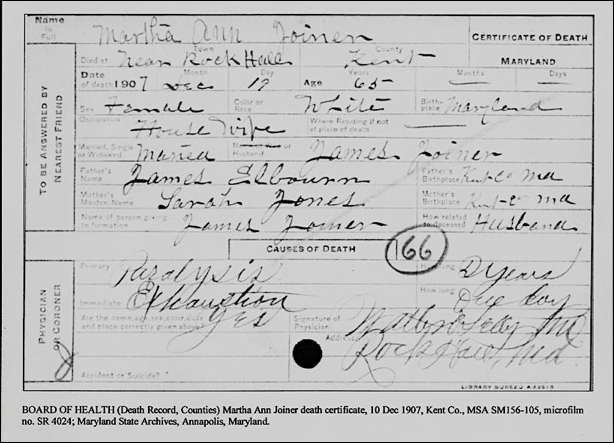 Name in Full Martha Ann Joiner CERTIFICATE OF DEATH
Town County
Died at Near Rock Hall Kent MARYLAND
Month Day Years Months Days
Date of death 1907 Dec 19 Age 65
Sex Female Color or Race White Birth-place Maryland
Occupation House Wife Where Residing if not at place of death
Married, Single or Widowed Maried Husband James Joiner
Father's Name James Elbourn Father's Birthplace Kent Co Md
Mother's Maiden Name Sarah Jones Mother's Birthplace Kent Co Md
Name of person giving information James Joiner How related to deceased Husband
TO BE ANSWERED BY NEAREST FRIEND
CAUSES OF DEATH 166
Primary Paralysis How long 2 years
Immediate Exhaustion How long One day
Are the name, age, sex, color, date and place correctly given above? Yes Signature of Physician Md
Address Rock Hall, Md.
Accident or Suicide?
PHYSICIAN OR CORONER
LIBRARY BUREAU
BOARD OF HEALTH (Death Record, Counties) Martha Ann Joiner death certificate, 10 Dec 1907, Kent Co., MSA SM156-105, microfilm
no. SR 4024; Maryland State Archives, Annapolis, Maryland.